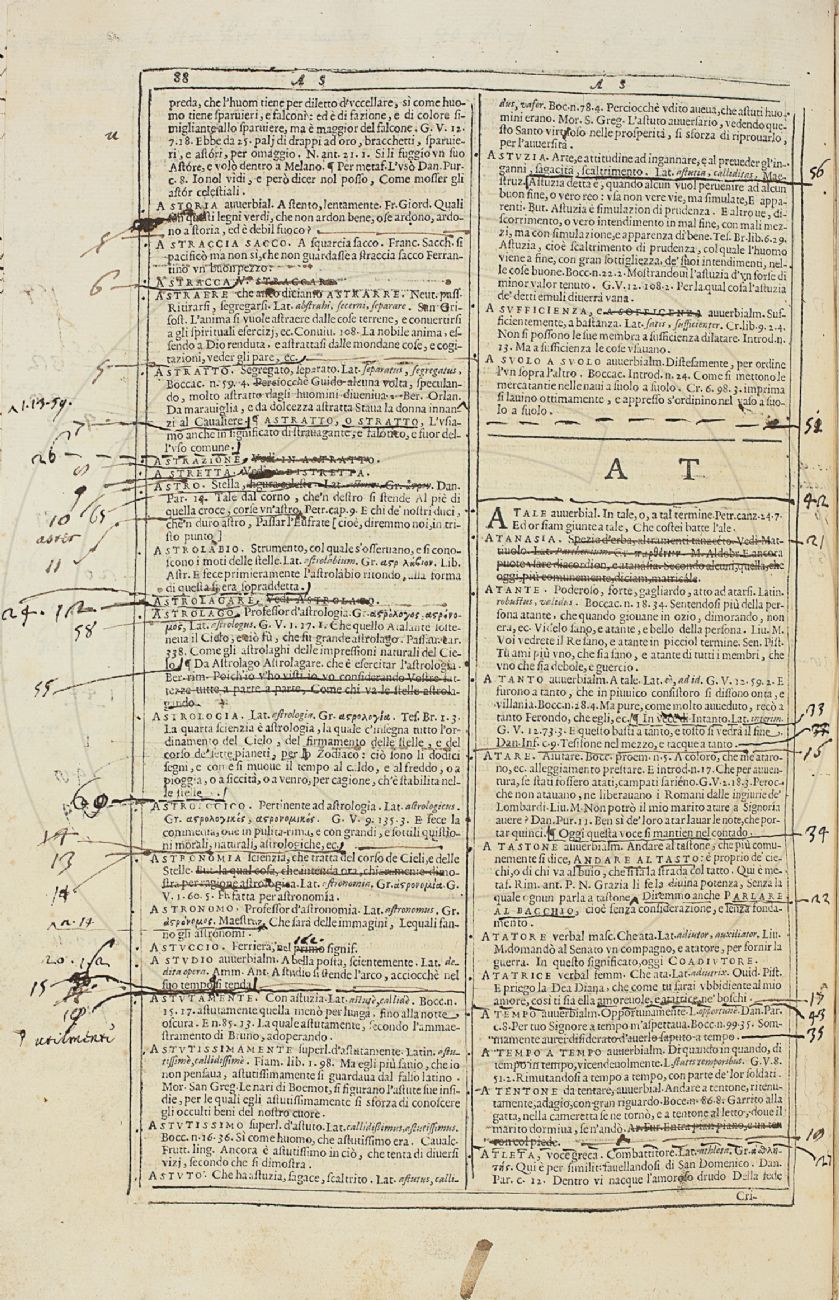 88
A S
A S
preda, che l'huom tiene per diletto d'vccellare, sì come huo-
mo tiene sparuieri, e falconi: ed è di fazione, e di colore si-
migliante allo sparuiere, ma è maggior del falcone. G. V. 12.
7. 18. Ebbe da 25. palj di drappi ad oro, bracchetti, sparuie-
ri, e astóri, per omaggio. N. ant. 21. 1. Si li fuggìo vn suo
Astóre, e volò dentro a Melano. ¶ Per metaf. L'vsò Dan. Pur.
c. 8. Io nol vidi, e però dicer nol posso, Come mosser gli
astór celestiali.
ASTORIA auuerbial. A stento, lentamente. Fr. Giord. Quali
son questi legni verdi, che non ardon bene, o se ardono, ardo-
no a storia, ed è debil fuoco?
A STRACCIA SACCO. A squarcia sacco. Franc. Sacch. si
pacificò ma non sì, che non guardasse a straccia sacco Ferran-
tino vn buon pezzo.
ASTRACCA V. STRACCARE
ASTRAERE che anco diciamo ASTRARRE. Neut. pass.
Ritirarsi, segregarsi. Lat. abstrahi, secerni, separare. San Gri-
sost. L'anima si vuole astraere dalle cose terrene, e conuertirsi
a gli spirituali esercizj, ec. Conuiu. 108. La nobile anima, es-
sendo a Dio renduta, e astratta si dalle mondane cose, e cogi-
tazioni, veder gli pare, ec.
ASTRATTO. Segregato, separato. Lat. separatus, segregatus.
Boccac. n. 59. 4. Perciocchè Guido alcuna volta, speculan-
do, molto astratto dagli huomini diueniua. Ber. Orlan.
Da marauiglia, e da dolcezza astratta Staua la donna innan-
zi al Caualiere. ¶ ASTRATTO, O STRATTO, L'vsia-
mo anche in significato di strauagante, e falotico, e fuor del-
l'vso comune.
ASTRAZIONE. Vedi IN ASTRATTO.
A STRETTA. Vedi DISTRETTA.
ASTRO. Stella, Dan.
Par. 14. Tale dal corno, che'n destro si stende Al piè di
quella croce, corse vn'astro, Petr. cap. 9. E chi de' nostri duci,
che'n duro astro, Passar l'Eufrate [cioè, diremmo noi, in tri-
sto punto]
ASTROLABIO. Strumento, col quale s'osseruano, e si cono-
scono i moti delle stelle. Lat. astrolabium. Gr. ἀστρολάβιον. Lib.
Astr. E fece primieramente l'astrolabio ritondo, alla forma
di questa spera sopraddetta.
ASTROLAGARE, Vedi ASTROLAGO.
ASTROLAGO. Professor d'astrologia. Gr. ἀστρολόγος, ἀστρονό-
μος, Lat. astrologus. G. V. 1. 17. 1. Che quello Atalante soste-
neua il Cielo, e ciò fù, che fu grande astrolago. Passau. car.
338. Come gli astrolaghi delle impressioni naturali del Cie-
lo. ¶ Da Astrolago Astrolagare. che è esercitar l'astrologia.
Ber. rim. Poich'io v'ho visti io vo considerando Vostre fat-
tezze tutte a parte a parte, Come chi va le stelle astrola-
gando.
ASTROLOGIA. Lat. astrologia. Gr. ἀστρολογία. Tes. Br. 1. 3.
La quarta scienzia è astrologia, la quale c'insegna tutto l'or-
dinamento del Cielo, del firmamento delle stelle, e del
corso de' sette pianeti, per lo Zodiaco: ciò sono li dodici
segni, e com'e si muoue il tempo al caldo, e al freddo, o a
pioggia, o a siccità, o a vento, per cagione, ch'è stabilita nel-
le stelle.
ASTROLOGICO. Pertinente ad astrologia. Lat. astrologicus.
Gr. ἀστρολογικός, ἀστρονομικός. G. V. 9. 135. 3. E fece la
commedia, oue in pulita rima, e con grandi, e sottili quistio-
ni morali, naturali, astrologiche, ec.
ASTRONOMIA scienzia, che tratta del corso de Cieli, e delle
Stelle. But. la qual cosa, che intenda ora, chiaramente dimo-
stra per ragione astrologica. Lat. astronomia. Gr. ἀστρονομία. G.
V. 1. 60. 5. Fu fatta per astronomia.
ASTRONOMO. Professor d'astronomia. Lat. astronomus. Gr.
ἀστρονόμος. Maestruz. Che sarà delle immagini, Le quali fan-
no gli astronomi.
ASTUCCIO. Ferriera, nel primo signif.
A STVDIO auuerbialm. A bella posta, scientemente. Lat. de-
dita opera. Amm. Ant. A studio si stende l'arco, acciocchè nel
suo tempo si tenda
ASTVTAMENTE. Con astuzia. Lat. astutè, callidè. Bocc. n.
15. 17. astutamente quella menò per lunga, fino alla notte
oscura. E n. 85. 13. La quale astutamente, secondo l'ammae-
stramento di Bruno, adoperando.
ASTVTISSIMAMENTE superl. d'astutamente. Latin. astu-
tissimè, callidissimè. Fiam. lib. 1. 98. Ma egli più sauio, che io
non pensaua, astutissimamente si guardaua dal falso latino.
Mor. San Greg. Le nari di Boemot, si figurano l'astute sue insi-
die, per le quali egli astutissimamente si sforza di conoscere
gli occulti beni del nostro cuore.
ASTVTISSIMO superl. d'astuto. Lat. callidissimus, astutissimus.
Bocc. n. 16. 36. Sì come huomo, che astutissimo era. Caualc.
Frutt. ling. Ancora è astutissimo in ciò, che tenta di diuersi
vizj, secondo che si dimostra.
ASTVTO. Che ha astuzia, sagace, scaltrito. Lat. astutus, calli-
dus, vafer. Boc. n. 78. 4. Perciocchè vdito aueua, che astuti huo-
mini erano. Mor. S. Greg. L'astuto auuersario, vedendo que-
sto Santo virtuoso nelle prosperità, si sforza di riprouarlo,
per l'auuersità.
ASTVZIA. Arte, e attitudine ad ingannare, e al preueder gl'in-
ganni, sagacità, scaltrimento. Lat. astutia, calliditas. Mae-
struz. Astuzia detta è, quando alcun vuol peruenire ad alcun
buon fine, o vero reo: vsa non vere vie, ma simulate, E appa-
renti. But. Astuzia è simulazion di prudenza. E altroue, di-
scorrimento, o vero intendimento in mal fine, con mali mez-
zi, ma con simulazione, e apparenza di bene. Tes. Br. lib. 6. 29.
Astuzia, cioè scaltrimento di prudenza, col quale l'huomo
viene a fine, con gran sottigliezza, de' suoi intendimenti, nel-
le cose buone. Bocc. n. 22. 2. Mostrandoui l'astuzia d'vn forse di
minor valor tenuto. G. V. 12. 108. 2. Per la qual cosa l'astuzia
de' detti emuli diuerrà vana.
A SVFFICIENZA, e A SOFFICENZA auuerbialm. Suf-
ficientemente, a bastanza. Lat. satis, sufficienter. Cr. lib. 9. 2. 4.
Non si possono le sue membra a sufficienza dilatare. Introd. n.
13. Ma a sufficienza le cose vsauano.
A SVOLO A SVOLO auuerbialm. Distesamente, per ordine
l'vn sopra l'altro. Boccac. Introd. n. 24. Come si mettono le
mercatantie nelle naui a suolo a suolo. Cr. 6. 98. 3. imprima
si lauino ottimamente, e appresso s'ordinino nel vaso a suo-
lo a suolo.
A T
ATALE auuerbial. In tale, o, a tal termine. Petr. canz. 24. 7.
Ed or siam giunte a tale, Che costei batte l'ale.
ATANASIA. Spezie d'erba, altramenti tanaceto. Vedi Mat-
tiuolo. Lat. Parthenium. Gr. παρθένιον. M. Aldobr. E ancora
puote vsare diacordion, e atanasia. Secondo alcuni, quella, che
oggi, più comunemente, diciam, matricale.
ATANTE. Poderoso, forte, gagliardo, atto ad atarsi. Latin.
robustus, validus. Boccac. n. 18. 34. Sentendosi più della per-
sona atante, che quando giouane in ozio, dimorando, non
era, ec. Videlo sano, e atante, e bello della persona. Liu. M.
Voi vedrete il Re sano, e atante in picciol termine. Sen. Pist.
Tu ami più vno, che sia sano, e atante di tutti membri, che
vno che sia debole, e guercio.
A TANTO auuerbialm. A tale. Lat. eò, ad id. G. V. 12. 59. 2. E
furono a tanto, che in piuuico consistoro si dissono onta, e
villania. Bocc. n. 28. 4. Ma pure, come molto auueduto, recò a
tanto Ferondo, che egli, ec. ¶ In vece di Intanto. Lat. interim.
G. V. 12. 73. 3. E questo basti a tanto, e tosto si vedrà il fine.
Dan. Inf. c. 9. Tesifone nel mezzo, e tacque a tanto.
ATARE. Aiutare. Bocc. proem. n. 5. A coloro, che me ataro-
no, ec. alleggiamento prestare. E introd. n. 17. Che per auuen-
tura, se stati fossero atati, campati sarieno. G. V. 2. 18. 3. Peroc-
che non atauano, nè liberauano i Romani dalle ingiurie de'
Lombardi. Liu. M. Non potrò il mio marito atare a Signoria
auere? Dan. Pur. 11. Ben si de' loro atar lauar le note, che por-
tar quinci. ¶ Oggi questa voce si mantien nel contado.
A TASTONE auuerbialm. Andare al tastone, che più comu-
nemente si dice, ANDARE AL TASTO: è proprio de' cie-
chi, o di chi va al buio, che si fa la strada col tatto. Qui è me-
taf. Rim. ant. P. N. Grazia li fe la diuina potenza, Senza la
quale ognun parla a tastone. Diremmo anche PARLARE
AL BACCHIO, cioè senza considerazione, e senza fonda-
mento.
ATATORE verbal masc. Che ata. Lat. adiutor, auxiliator. Liu.
M. domandò al Senato vn compagno, e atatore, per fornir la
guerra. In questo significato, oggi COADIVTORE.
ATATRICE verbal femm. Che ata. Lat. adiutrix. Ouid. Pist.
E priego la Dea Diana, che come tu sarai vbbidiente al mio
amore, così ti sia ella amoreuole, e atatrice ne' boschi.
A TEMPO auuerbialm. Opportunamente. L. opportunè. Dan. Par.
c. 8. Per tuo Signore a tempo m'aspettaua. Bocc. n. 99. 35. Som-
mamente aurei disiderato d'auerlo saputo a tempo.
A TEMPO A TEMPO auuerbialm. Di quando in quando, di
tempo in tempo, vicendeuolmente. L. statis temporibus. G. V. 8.
51. 2. Rimutandosi a tempo a tempo, con parte de' lor soldati.
A TENTONE da tentare, auuerbial. Andare a tentone, ritenu-
tamente, adagio, con gran riguardo. Bocc. n. 86. 8. Garrito alla
gatta, nella cameretta se ne tornò, e a tentone al letto, doue il
marito dormiua, se n'andò. Ar. Fur. Entra pian piano, e va ten-
ton col piede.
ATLETA, voce greca. Combattitore. Lat. athleta. Gr. ἀθλη-
τής. Qui è per similit. fauellandosi di San Domenico. Dan.
Par. c. 12. Dentro vi nacque l'amoroso drudo Della fede
Cri-
8
6
5
7
26
9
10
65
11
24. 12
58
55
69
14
13
14
20. 12
15
19
utilmente
56
52
42
21
33
15
34
22
13
43
35
19